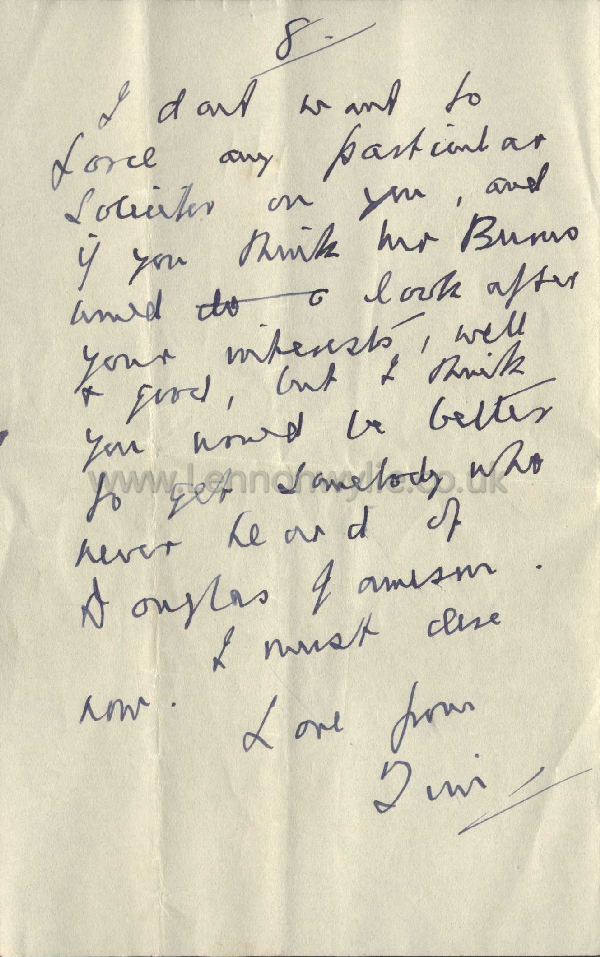 8.
I dont want to
force any particular
Solicitor on you, and
if you think Mr Burns
would to look after
your interests, well
+ good, but I think
you would be better
to get somebody who
never heard of
Douglas Jameson.
I must close
now.
Love from
Jim
www.Lennonwylie.co.uk